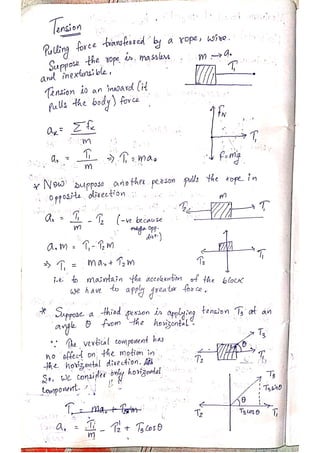 Tension
Pulling force transferred by a rope, wire.
Suppose the rope is massless
and inextensible.
m → aₓ
T₁
Tension is an inward (it
pulls the body) force
Fɴ
aₓ = ΣFₓ / m
T₁
aₓ = T₁/m ⇒ T₁ = maₓ
F=mg
* Now suppose another person pulls the rope in
opposite direction
m
aₓ = T₁/m - T₂ (-ve because
opp.
dirⁿ.)
T₂ T₁
aₓm = T₁ - T₂m
T₂ T₁
⇒ T₁ = maₓ + T₂m
i.e. to maintain the acceleration of the block
we have to apply greater force.
* Suppose a third person is applying tension T₃ at an
angle θ from the horizontal.
∵ The vertical component has
no effect on the motion in
the horizontal direction.
So, we consider only horizontal
component.
T₃
θ
T₂ T₁
T₃
T₃ sinθ
θ
T₂ T₃ cosθ T₁
T₁ = maₓ + T₂m
aₓ = T₁/m - T₂ + T₃ cosθ